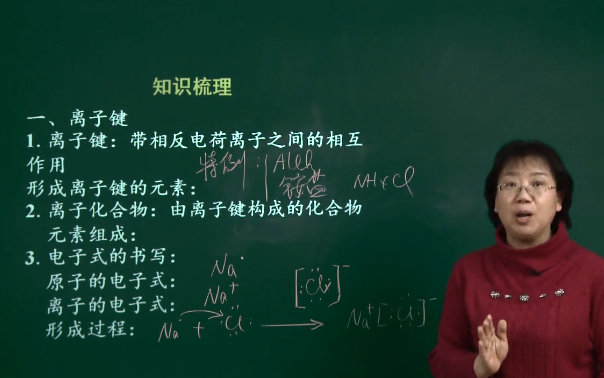 知识梳理
一、离子键
1. 离子键：带相反电荷离子之间的相互
作用
特例：AlCl₃
形成离子键的元素：
铵盐 NH₄Cl
2. 离子化合物：由离子键构成的化合物
元素组成：
3. 电子式的书写：
原子的电子式： Na·
离子的电子式： Na⁺ [:Cl:]⁻
形成过程： Na· + ·Cl: ⟶ Na⁺[:Cl:]⁻